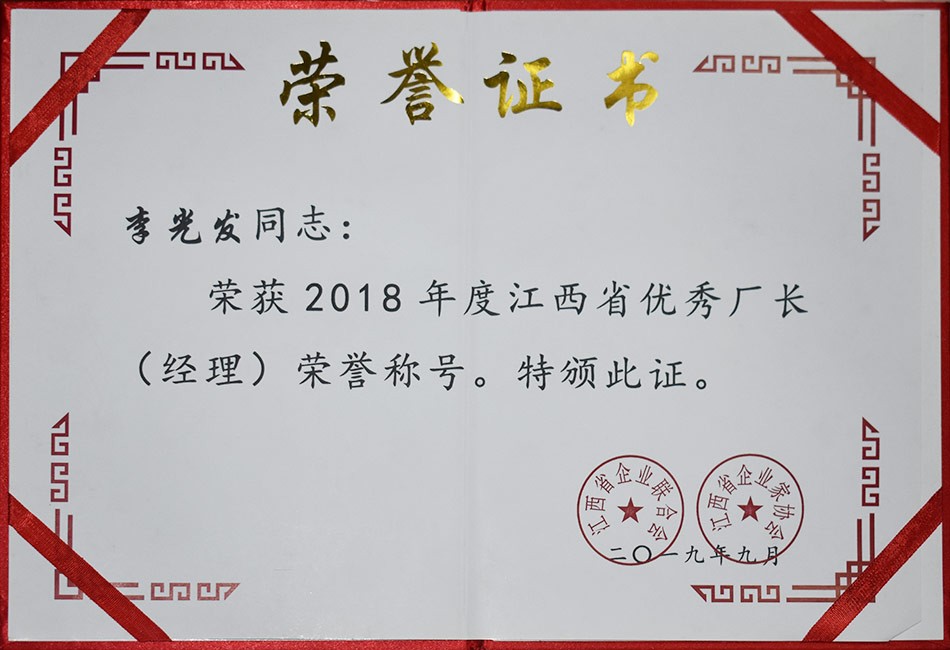 荣誉证书
李光发同志：
荣获2018年度江西省优秀厂长
（经理）荣誉称号。特颁此证。
江西省企业联合会
江西省企业家协会
二〇一九年九月